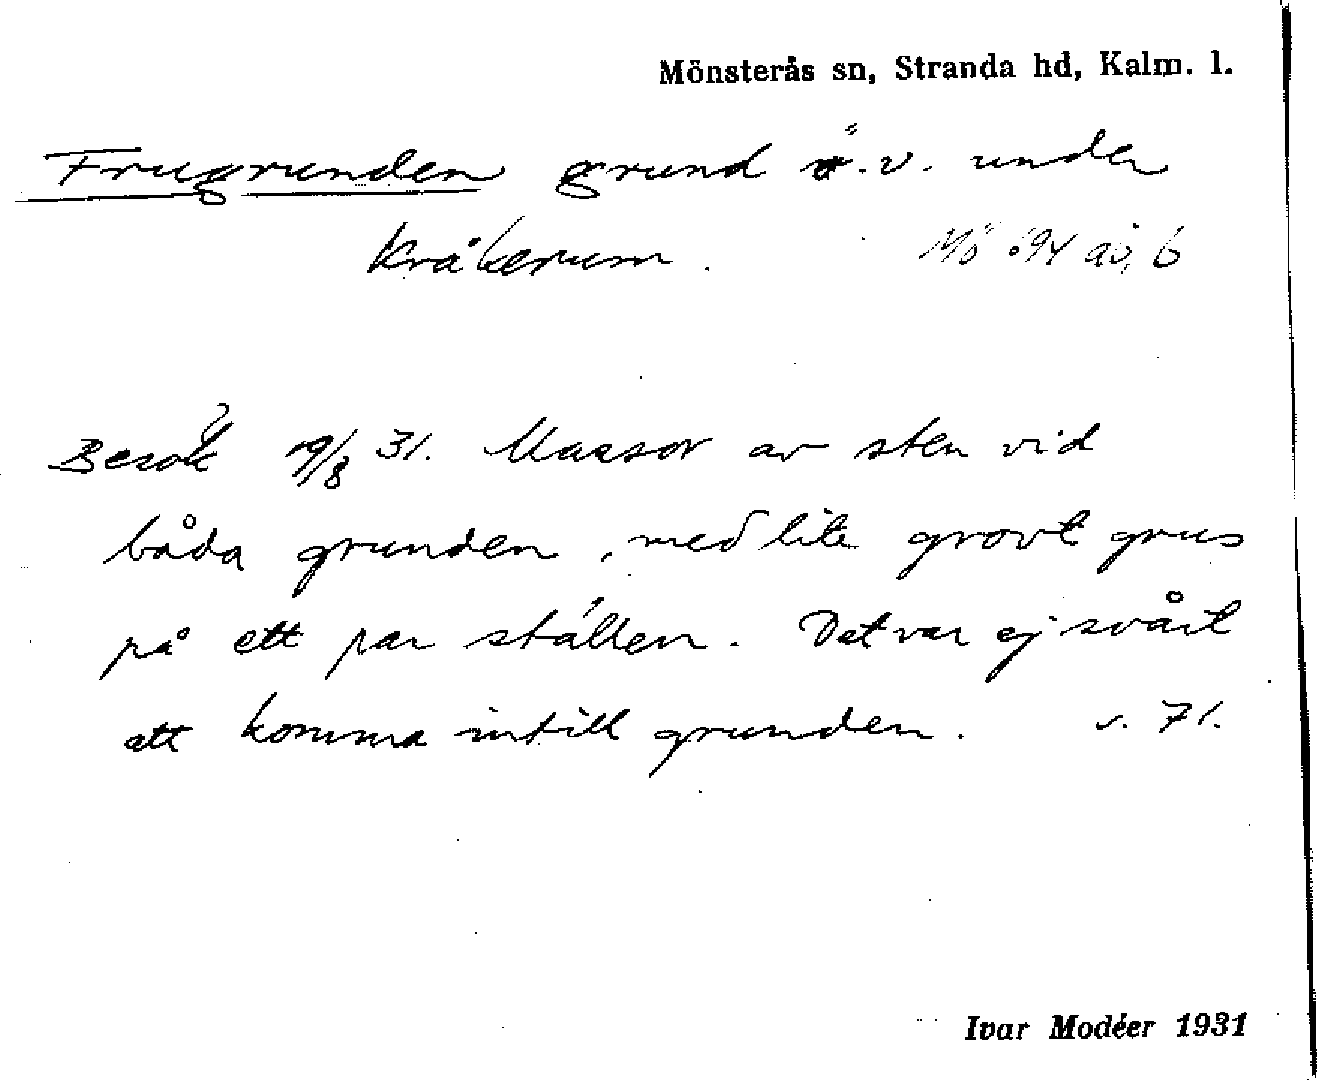 Mönsterås sn, Stranda hd, Kalm. l.
Frugrunden grund ö.v. under
Kråkerum. Mö
Besök 19/8 31. Massor av sten vid
båda grunden, med lite grovt grus
på ett par ställen. Det var ej svårt
att komma intill grunden. s. 71.
Ivar Modéer 1931